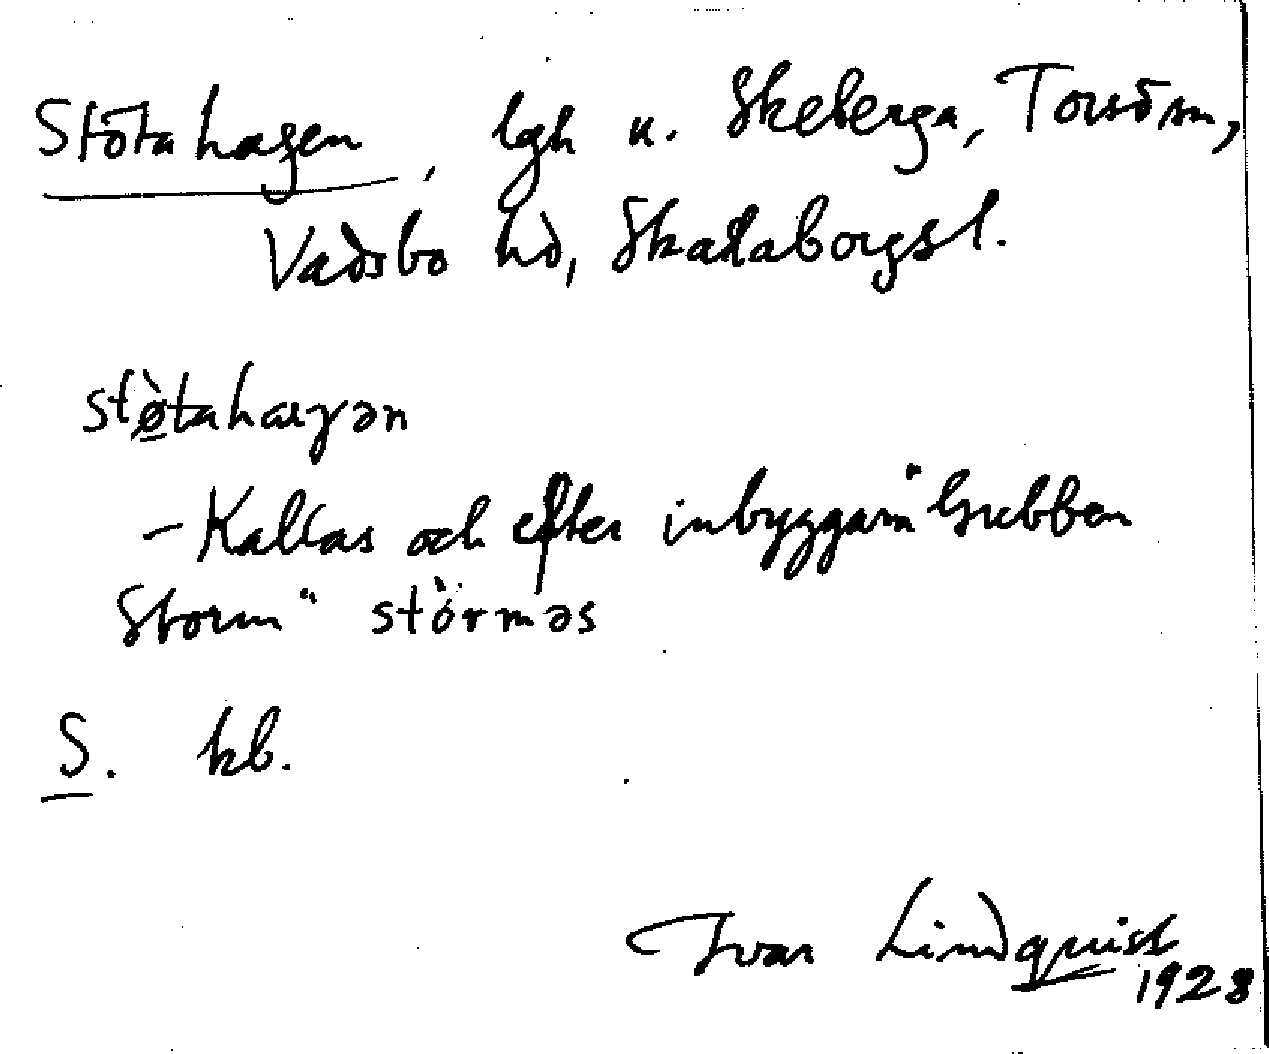 Stötahagen, lgh u. Skeberga, Torsö sn,
Vadsbo hd, Skaraborgs l.
stø̀tahaɡən
- Kallas och efter inbyggarn "Gubben
Storm" stòrməs
S. kb.
Ivar Lindquist
1928